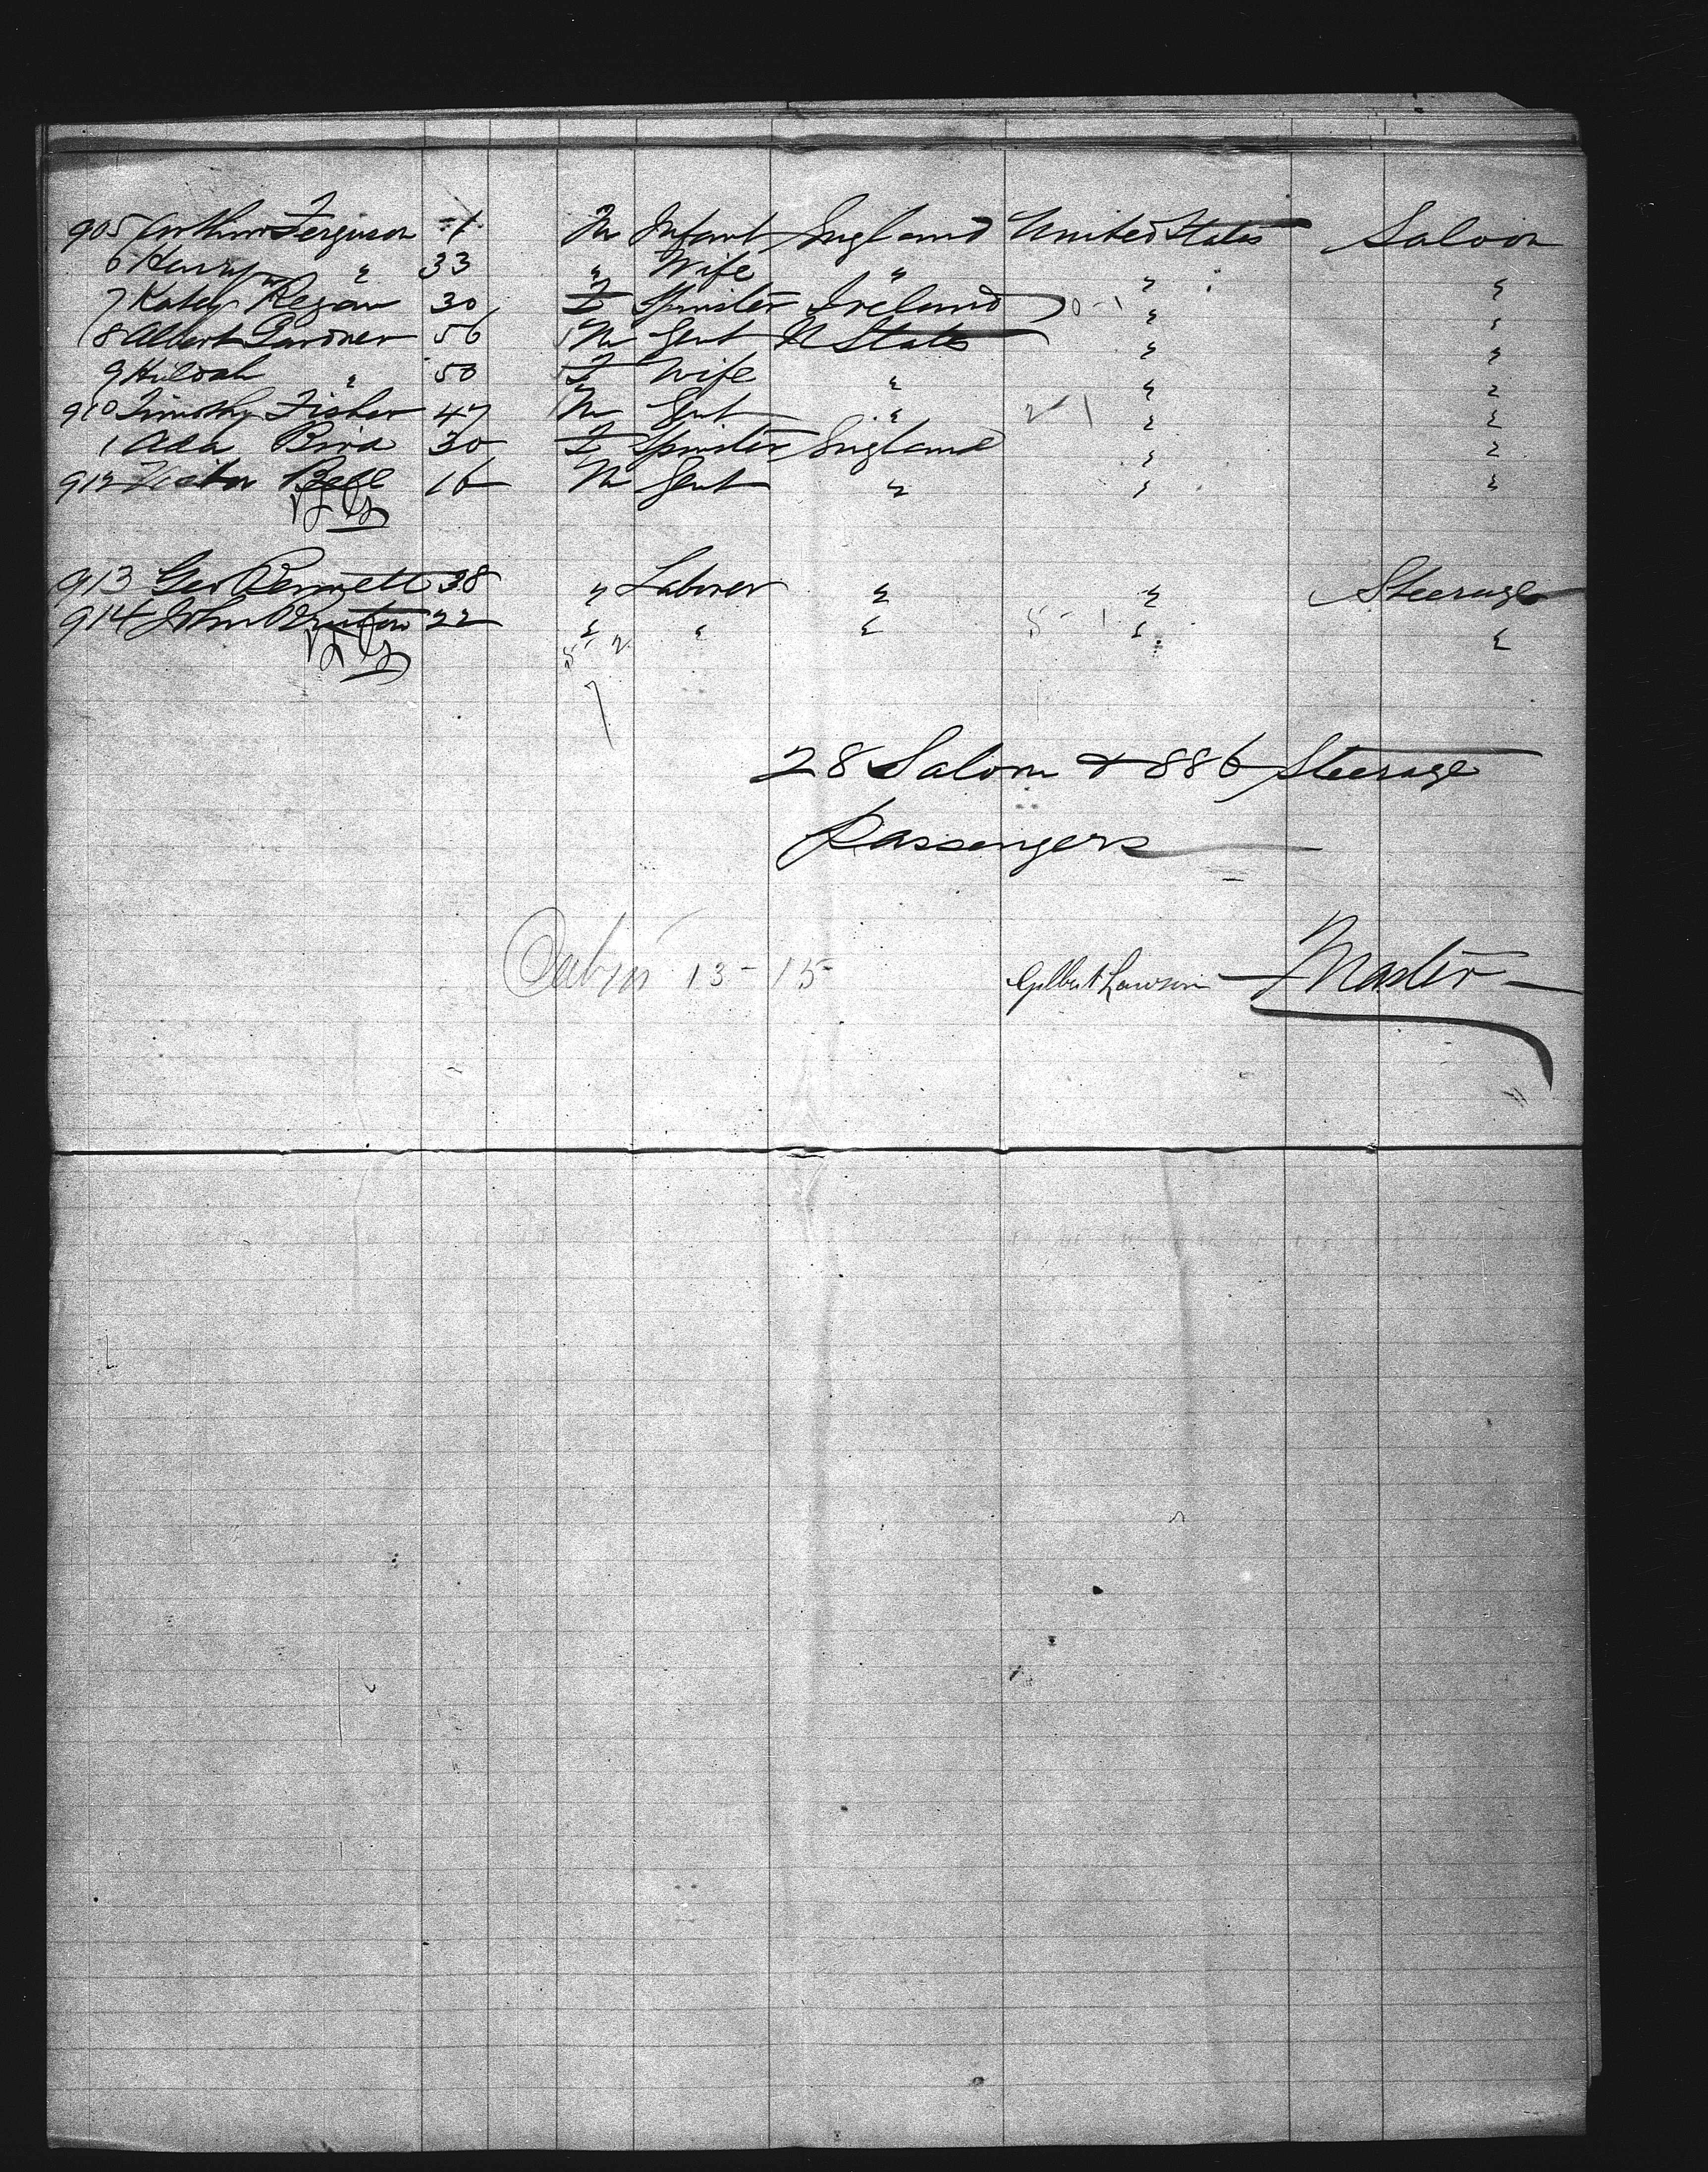 905 Arthur Ferguson -1 M Infant England United States Saloon
6 Henry " 33 " Wife " " "
7 Katey Regan 30 F Spinster Ireland " "
8 Albert Gardner 56 M Gent U States " "
9 Huldah " 50 F Wife " " "
910 Timothy Fisher 47 M Gent " " "
1 Ada Bird 30 F Spinster England " "
912 Victor Bell 16 M Gent " " "
913 Geo Bennett 38 " Laborer " " Steerage
914 John 22 " " " " "
28 Saloon & 886 Steerage
Passengers
Cabin 13 - 15
Gilbert Lawson Master